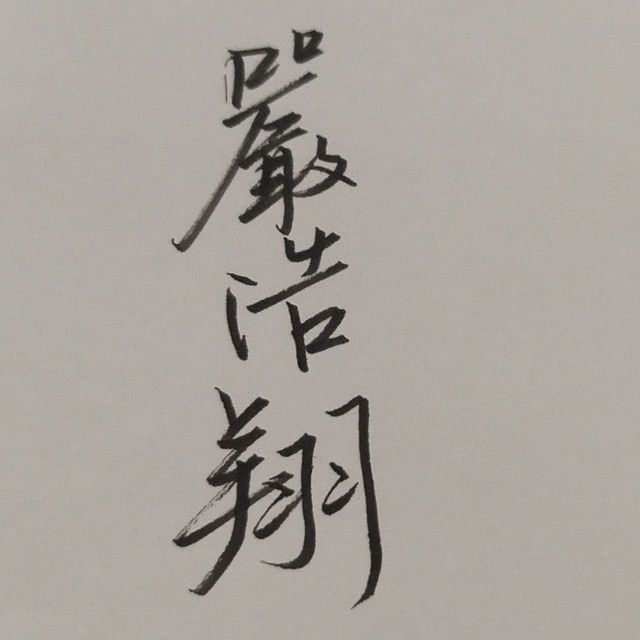 嚴浩翔